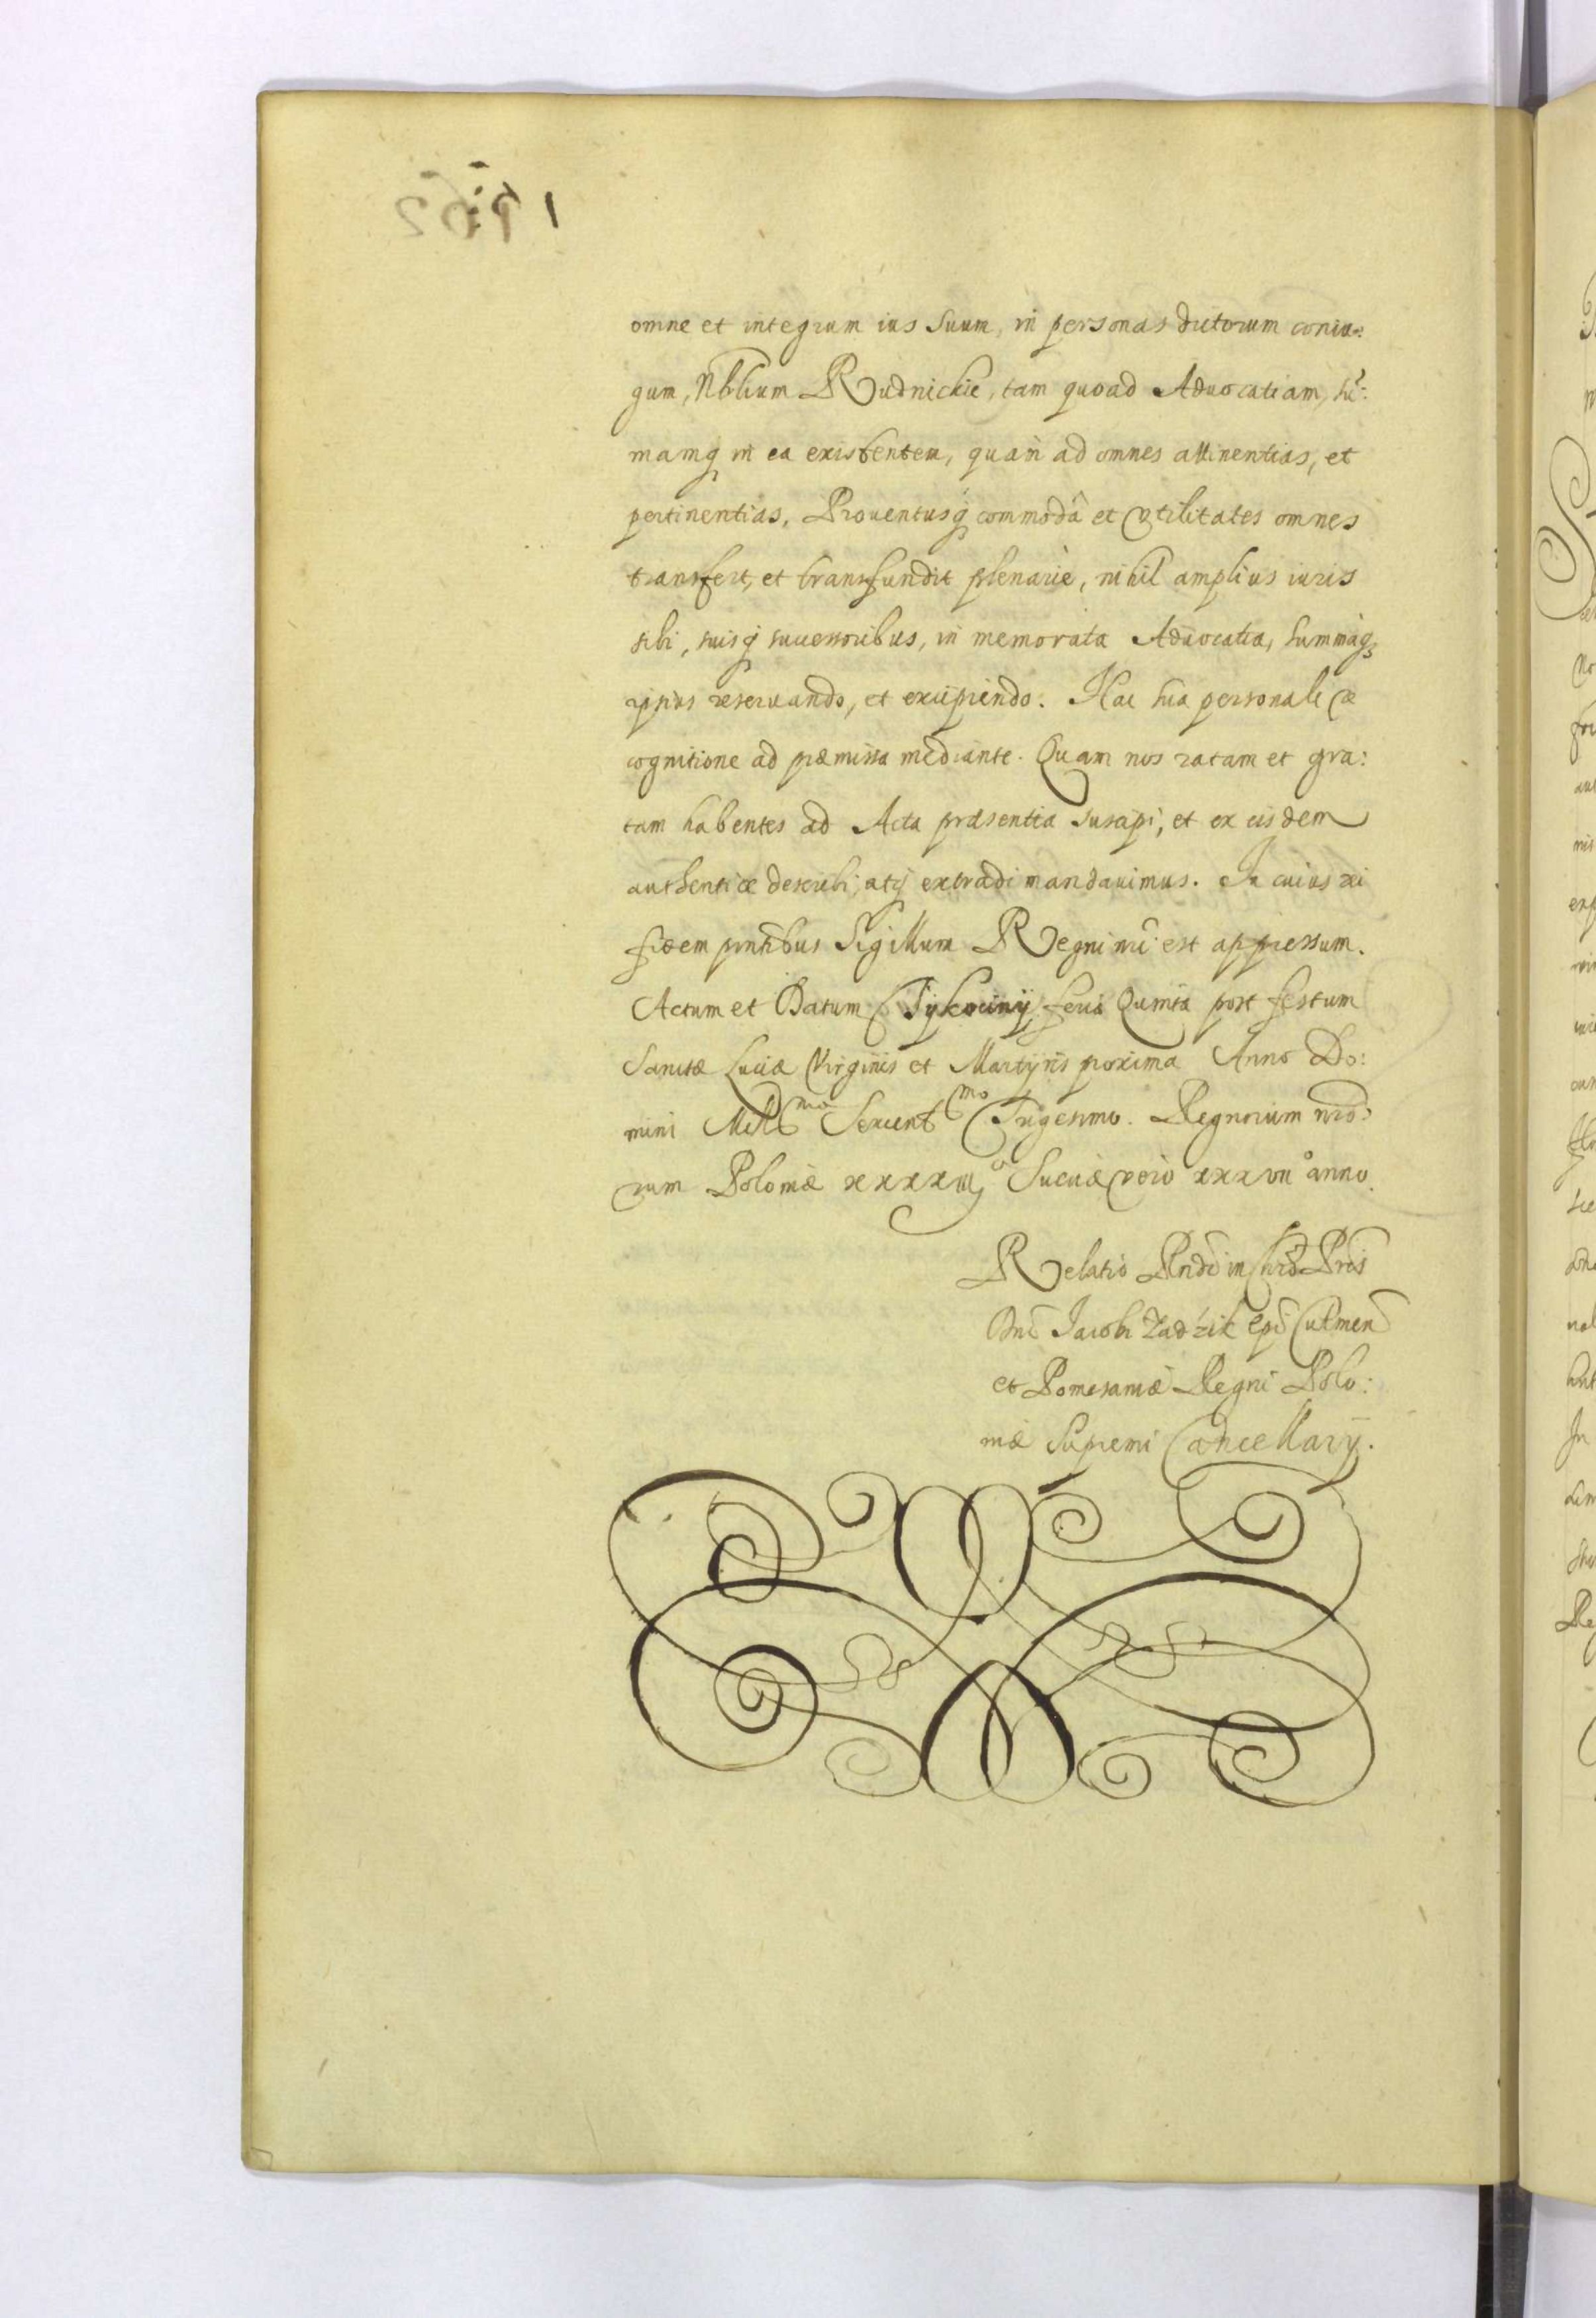 omne et integrum ius suum, in personas dictorum coniu:
gum, Nblium Rudnickie, tam quoad Aduocatiam, sū:
mamq in ea existentem, quam ad omnes attinentias, et
pertinentias, Prouentusq commoda et vtilitates omnes
transfert, et transfundit plenarie, nihil amplius iuris
sibi, suisq successoribus, in memorata Aduocatia, summaq
ipsius reseruando, et excipiendo. Hac sua personali re
cognitione ad præmissa mediante. Quam nos ratam et gra:
tam habentes ad Acta præsentia suscipi, et ex eisdem
authenticæ describi, atq extradi mandauimus. In cuius rei
fidem pntibus Sigillum Regni nri est appressum.
Actum et Datum Tykociny feria Quinta post festum
Sanctæ Luciæ Virginis et Martyris proxima Anno Do:
mini Mill̃mo Sexcent̃mo Trigesimo. Regnorum nro:
rum Poloniæ xxxxiijo Sueciæ vero xxxvııo anno.
Relatio Rndi in Chro Pris
Dni Jacobi Zadzik Epi Culmen
et Pomesaniæ Regni Polo:
niæ Supremi Cancellarij.